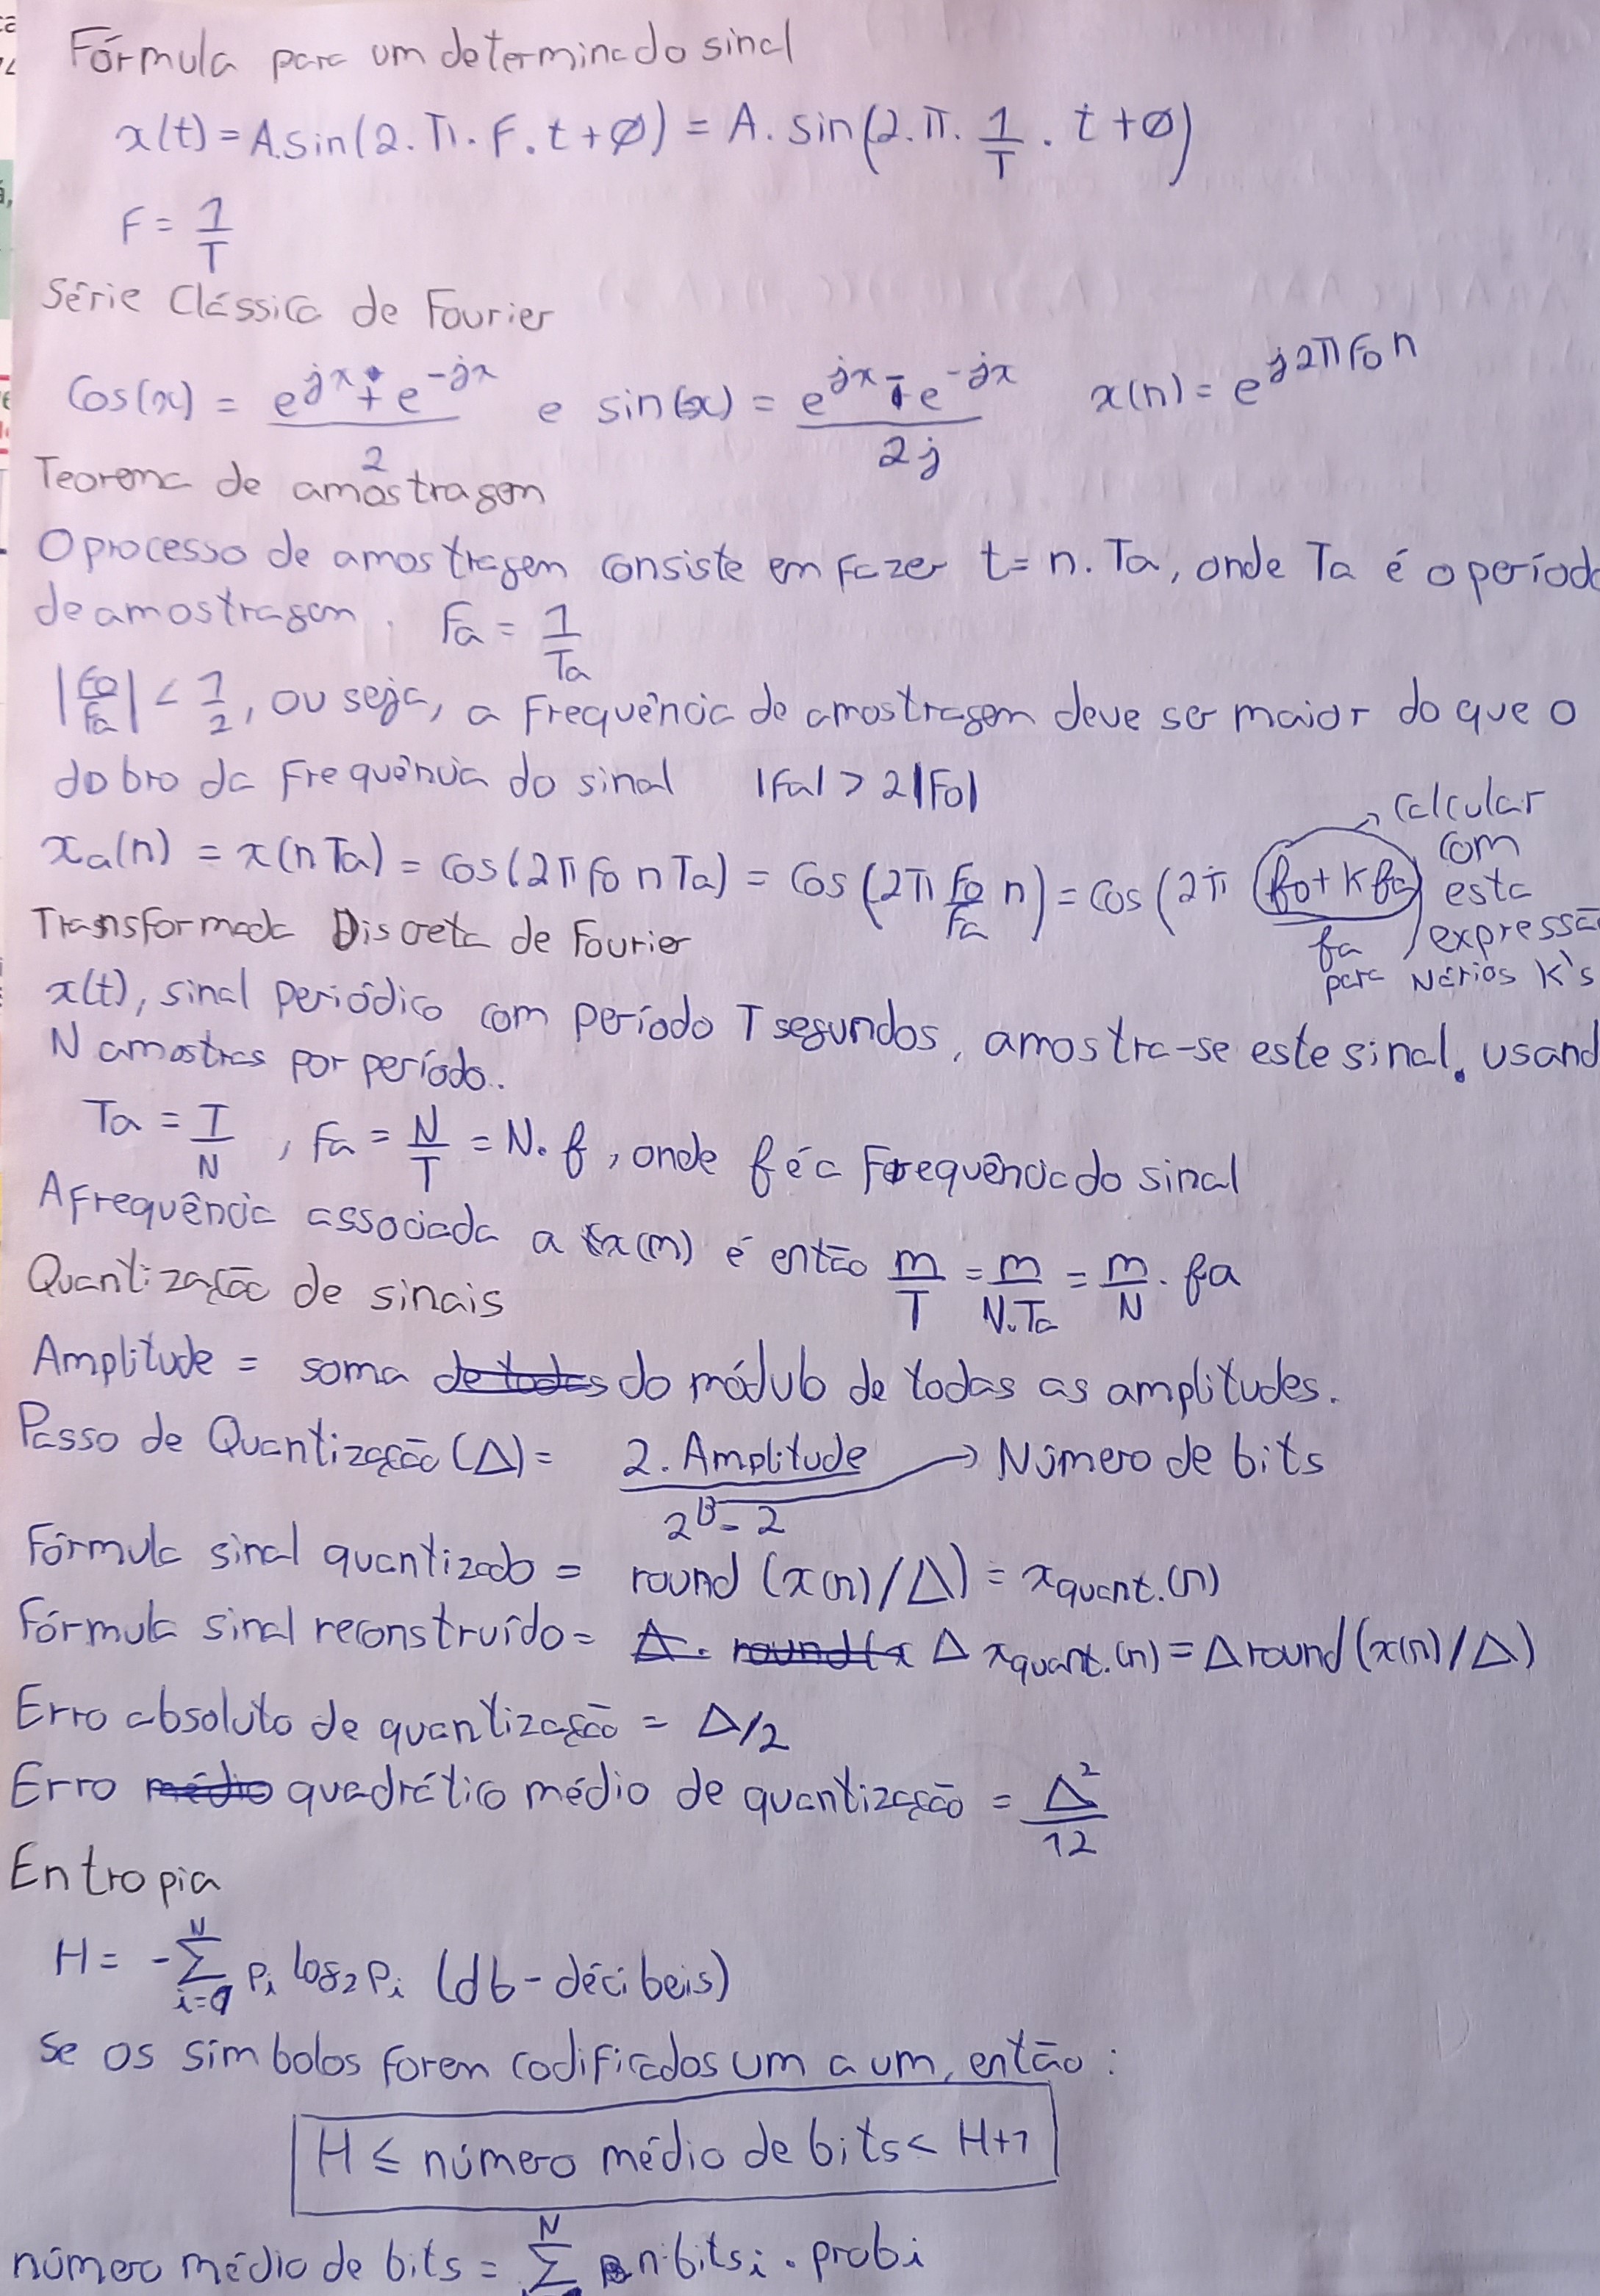 Fórmula para um determinado sinal
x(t) = A.sin(2.π.F.t+Ø) = A.sin(2.π.1/T.t+Ø)
F = 1/T
Série Clássica de Fourier
Cos(x) = (e^jx + e^-jx)/2 e sin(x) = (e^jx - e^-jx)/2j x(n) = e^j2πFon
Teorema de amostragem
O processo de amostragem consiste em fazer t = n.Ta, onde Ta é o período
de amostragem. Fa = 1/Ta
|Fo/Fa| < 1/2, ou seja, a frequência de amostragem deve ser maior do que o
dobro da frequência do sinal |Fa| > 2|Fo|
xa(n) = x(nTa) = cos(2πFonTa) = cos(2π Fo/Fa n) = cos(2π (fo+kfa)/fa) → calcular com esta expressão para vários K's
Transformada Discreta de Fourier
x(t), sinal periódico com período T segundos, amostra-se este sinal, usand
N amostras por período.
Ta = T/N, Fa = N/T = N.f, onde f é a Frequência do sinal
A frequência associada a x(m) é então m/T = m/N.Ta = m/N.fa
Quantização de sinais
Amplitude = soma de todas do módulo de todas as amplitudes.
Passo de Quantização (Δ) = 2.Amplitude/(2^B-2) → Número de bits
Fórmula sinal quantizado = round (x(n)/Δ) = xquant.(n)
Fórmula sinal reconstruído = Δ. round(x Δ xquant.(n) = Δ round(x(n)/Δ)
Erro absoluto de quantização = Δ/2
Erro médio quadrático médio de quantização = Δ²/12
Entropia
H = -∑ᴺi=0 pi log2 pi (db-décibeis)
Se os símbolos forem codificados um a um, então:
H ≤ número médio de bits < H+1
número médio de bits = ∑ᴺ n.bitsi.probi